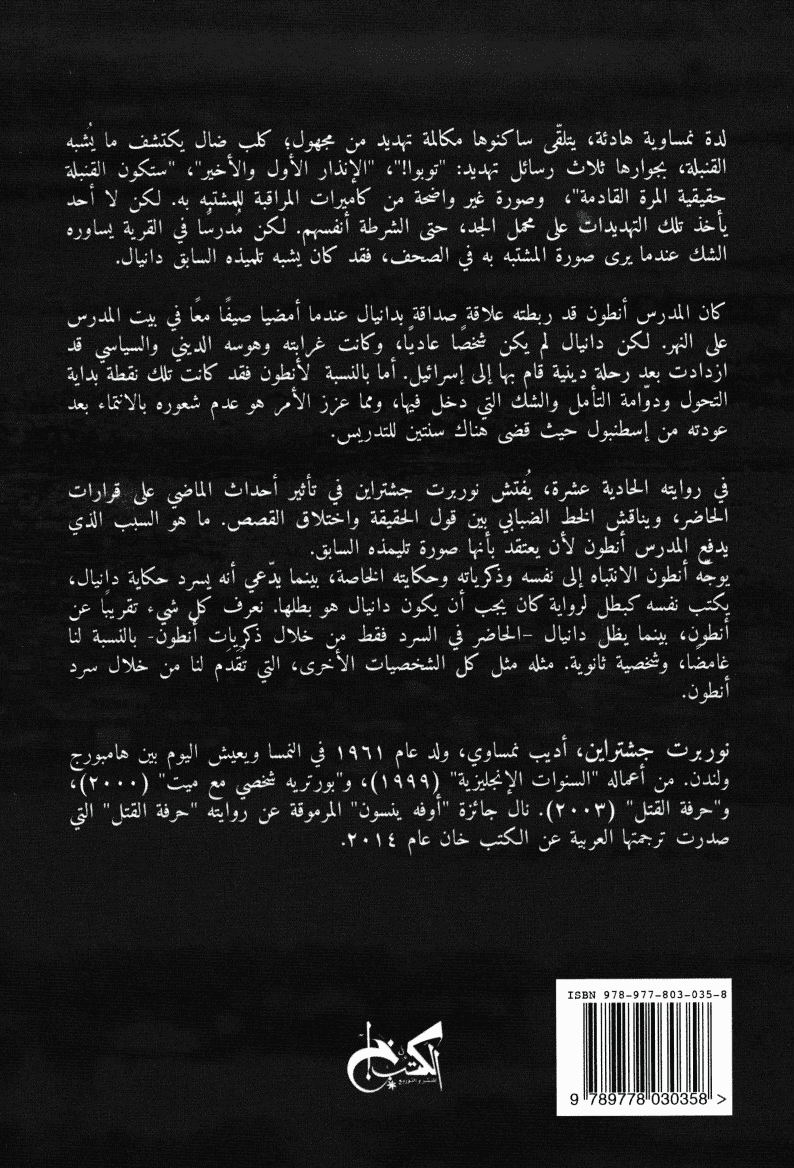 لدة نمساوية هادئة، يتلقّى ساكنوها مكالمة تهديد من مجهول؛ كلب ضال يكتشف ما يُشبه
القنبلة، بجوارها ثلاث رسائل تهديد: "توبوا!"، "الإنذار الأول والأخير"، "ستكون القنبلة
حقيقية المرة القادمة"، وصورة غير واضحة من كاميرات المراقبة للمشتبه به. لكن لا أحد
يأخذ تلك التهديدات على محمل الجد، حتى الشرطة أنفسهم. لكن مُدرسًا في القرية يساوره
الشك عندما يرى صورة المشتبه به في الصحف، فقد كان يشبه تلميذه السابق دانيال.
كان المدرس أنطون قد ربطته علاقة صداقة بدانيال عندما أمضيا صيفًا معًا في بيت المدرس
على النهر. لكن دانيال لم يكن شخصًا عاديًا، وكانت غرابته وهوسه الديني والسياسي قد
ازدادت بعد رحلة دينية قام بها إلى إسرائيل. أما بالنسبة لأنطون فقد كانت تلك نقطة بداية
التحول ودوّامة التأمل والشك التي دخل فيها، ومما عزز الأمر هو عدم شعوره بالانتماء بعد
عودته من إسطنبول حيث قضى هناك سنتين للتدريس.
في روايته الحادية عشرة، يُفتش نوربرت جشتراين في تأثير أحداث الماضي على قرارات
الحاضر، ويناقش الخط الضبابي بين قول الحقيقة واختلاق القصص. ما هو السبب الذي
يدفع المدرس أنطون لأن يعتقد بأنها صورة تليمذه السابق.
يوجّه أنطون الانتباه إلى نفسه وذكرياته وحكايته الخاصة، بينما يدّعي أنه يسرد حكاية دانيال،
يكتب نفسه كبطل لرواية كان يجب أن يكون دانيال هو بطلها. نعرف كل شيء تقريبًا عن
أنطون، بينما يظل دانيال –الحاضر في السرد فقط من خلال ذكريات أنطون- بالنسبة لنا
غامضًا، وشخصية ثانوية. مثله مثل كل الشخصيات الأخرى، التي تُقَدَم لنا من خلال سرد
أنطون.
نوربرت جشتراين، أديب نمساوي، ولد عام ١٩٦١ في النمسا ويعيش اليوم بين هامبورج
ولندن. من أعماله "السنوات الإنجليزية" (١٩٩٩)، و"بورتريه شخصي مع ميت" (٢٠٠٠)،
و"حرفة القتل" (٢٠٠٣). نال جائزة "أوفه ينسون" المرموقة عن روايته "حرفة القتل" التي
صدرت ترجمتها العربية عن الكتب خان عام ٢٠١٤.
ISBN 978-977-803-035-8
9 789778 030358 >
الكتب خان
للنشر والتوزيع